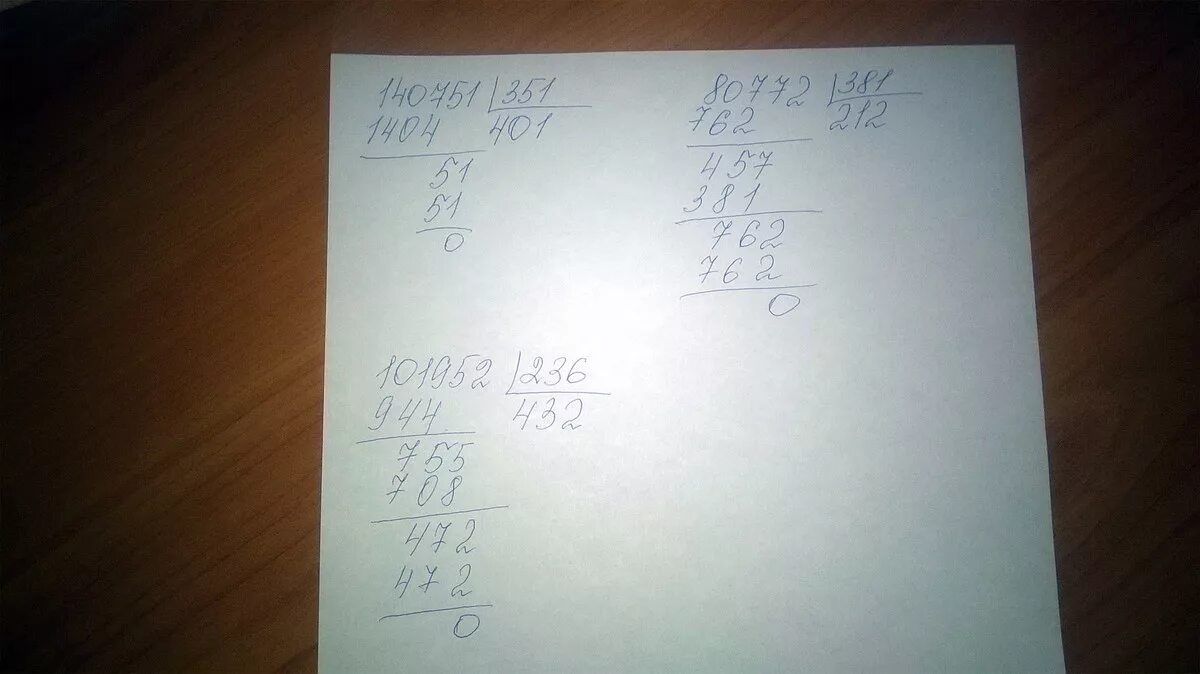 140751 |351
1404 401
51
51
0
80772 |381
762 212
457
381
762
762
0
101952 |236
944 432
755
708
472
472
0